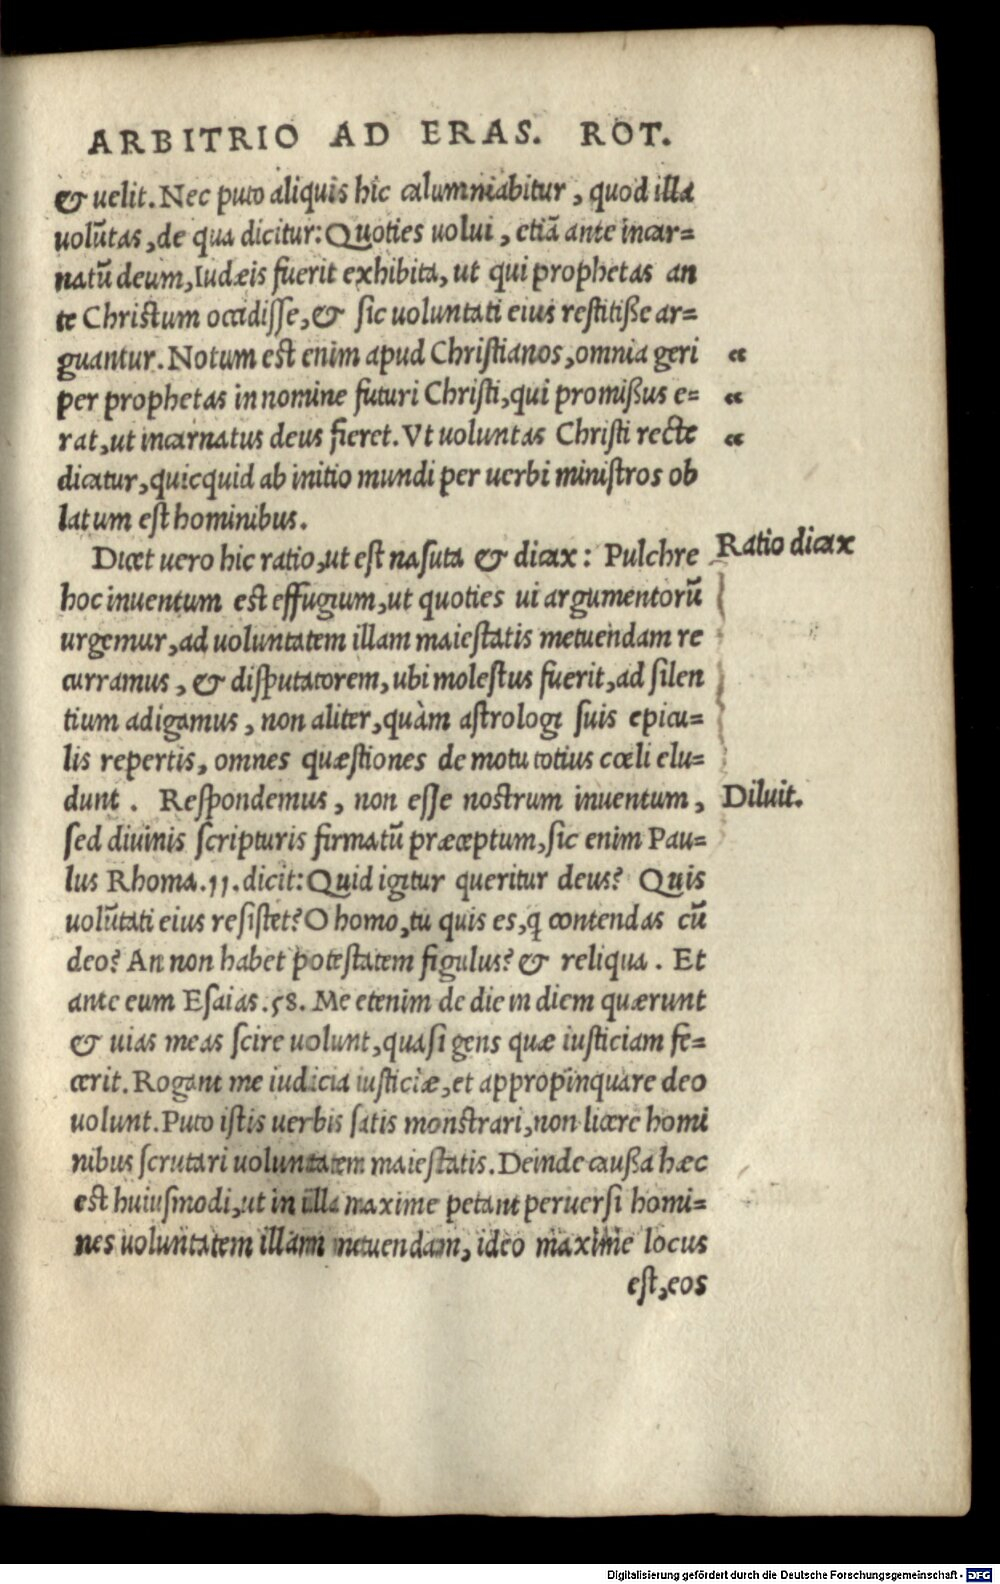 ARBITRIO AD ERAS. ROT.
& uelit. Nec puto aliquis hic calumniabitur, quod illa
uolūtas, de qua dicitur: Quoties uolui, etiā ante incar=
natū deum, Iudæis fuerit exhibita, ut qui prophetas an
te Christum occidisse, & sic uoluntati eius restitiße ar=
guantur. Notum est enim apud Christianos, omnia geri
per prophetas in nomine futuri Christi, qui promißus e=
rat, ut incarnatus deus fieret. Vt uoluntas Christi recte
dicatur, quicquid ab initio mundi per uerbi ministros ob
latum est hominibus.
Dicet uero hic ratio, ut est nasuta & dicax: Pulchre
Ratio dicax
hoc inuentum est effugium, ut quoties ui argumentorū
urgemur, ad uoluntatem illam maiestatis metuendam re
curramus, & disputatorem, ubi molestus fuerit, ad silen
tium adigamus, non aliter, quàm astrologi suis epicu=
lis repertis, omnes quæstiones de motu totius cœli elu=
dunt. Respondemus, non esse nostrum inuentum,
Diluit.
sed diuinis scripturis firmatū præceptum, sic enim Pau=
lus Rhoma.11. dicit: Quid igitur queritur deus? Quis
uolūtati eius resistet? O homo, tu quis es, q̃ contendas cū
deo? An non habet potestatem figulus? & reliqua. Et
ante eum Esaias.58. Me etenim de die in diem quærunt
& uias meas scire uolunt, quasi gens quæ iusticiam fe=
cerit. Rogant me iudicia iusticiæ, et appropinquare deo
uolunt. Puto istis uerbis satis monstrari, non licere homi
nibus scrutari uoluntatem maiestatis. Deinde caußa hæc
est huiusmodi, ut in illa maxime petant peruersi homi=
nes uoluntatem illam metuendam, ideo maxime locus
est, eos
Digitalisierung gefördert durch die Deutsche Forschungsgemeinschaft - DFG